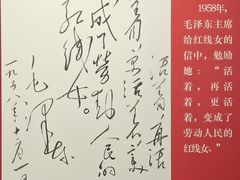 活着，再活
着，更活着，变
成了劳动人民的
红线女。
毛泽东
1958年，
毛泽东主席
给红线女的
信中，勉励
她：“活
着，再活
着，更活
着，变成了
劳动人民的
红线女。”